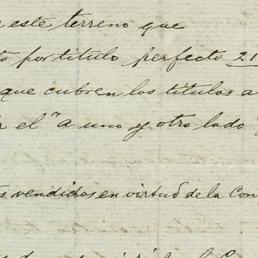 este terreno que
por título perfecto 21
que cubren los títulos a
el "a uno y otro lado
vendidos en virtud de la Con